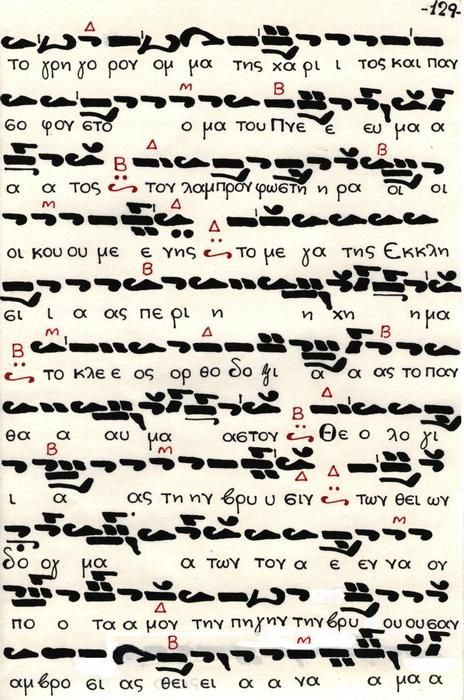 -129-
το γρη γο ρον ομ μα της χα ρι ι τος και παν
σο φον στο ο μα του Πνε ε ευ μα α
α α τος τον λαμπρον φωστη η ρα οι οι
οι κου ου με ε νης το με γα της Εκκλη
σι ι α ας πε ρι η η χη η μα
το κλε ε ος ορ θο δο ξι α α ας το παν
θα α αυ μα αστον Θε ο λο γι
ι α ας τη ην βρυ υ σιν των θει ων
δο ογ μα α των τον α ε εν να ον
πο ο τα α μον την πηγην την βρυ ου ου σαν
αμ βρο σι ας θει ει α α να α μα α